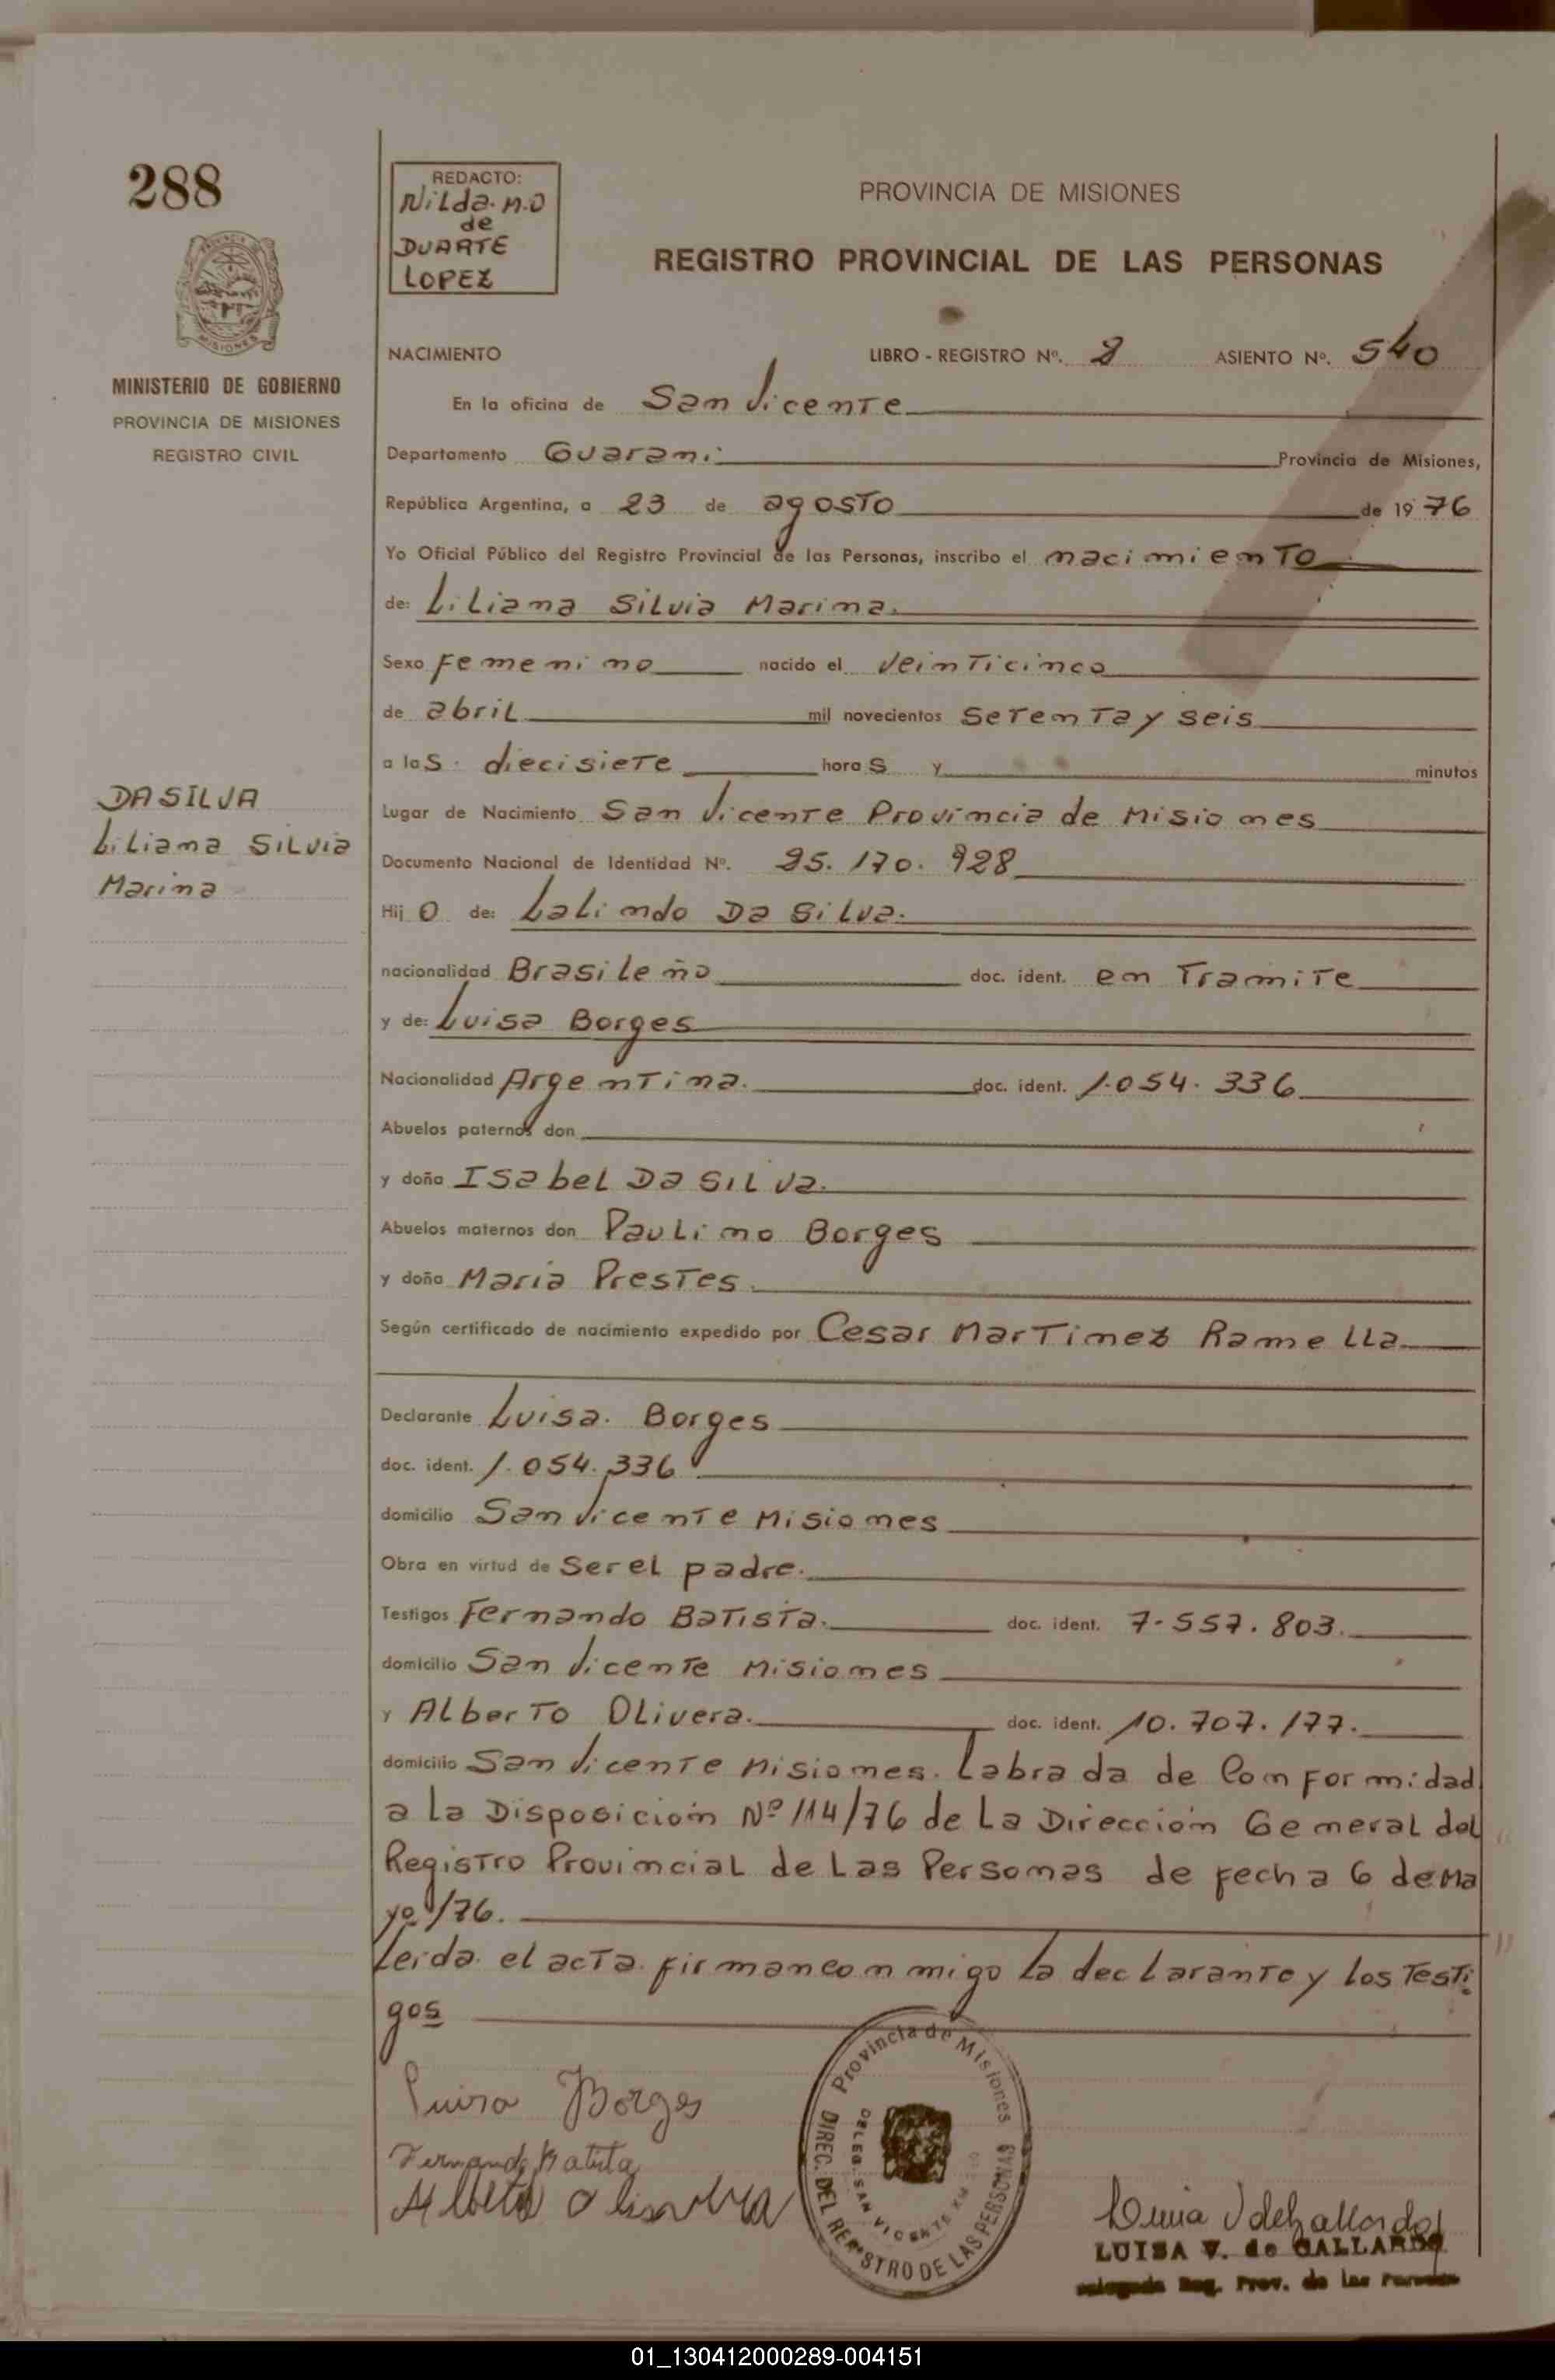 288
REDACTO:
Nilda. M.O
de
DUARTE
LOPEZ
PROVINCIA DE MISIONES
REGISTRO PROVINCIAL DE LAS PERSONAS
MISIONES
MINISTERIO DE GOBIERNO
PROVINCIA DE MISIONES
REGISTRO CIVIL
NACIMIENTO LIBRO - REGISTRO Nº. 2 ASIENTO Nº. 540
En la oficina de San Vicente
Departamento Guarani Provincia de Misiones,
República Argentina, a 23 de agosto de 1976
Yo Oficial Público del Registro Provincial de las Personas, inscribo el nacimiento
de: Liliana Silvia Marina.
Sexo Femenino nacido el veinticinco
de abril mil novecientos setenta y seis
a las. diecisiete horas y minutos
DA SILVA
Liliana Silvia
Marina
Lugar de Nacimiento San Vicente Provincia de Misiones
Documento Nacional de Identidad Nº. 25.170.928
Hijo de: Lalindo Da Silva.
nacionalidad Brasileño doc. ident. en Tramite
y de: Luisa Borges
Nacionalidad Argentina. doc. ident. 1.054.336
Abuelos paternos don
y doña Isabel Da Silva.
Abuelos maternos don Paulino Borges
y doña Maria Prestes.
Según certificado de nacimiento expedido por Cesar Martinez Ramella
Declarante Luisa. Borges
doc. ident. 1.054.336
domicilio San Vicente Misiones
Obra en virtud de Ser el padre.
Testigos Fernando Batista. doc. ident. 7-557.803.
domicilio San Vicente Misiones
y Alberto Olivera. doc. ident. 10.707.177.
domicilio San Vicente Misiones. Labrada de Conformidad
a la Disposición Nº 114/76 de La Dirección General del
Registro Provincial de Las Personas de fecha 6 de Ma
yo/76.
Leida el acta firman conmigo la declarante y los Testi
gos
Luisa Borges
Fernando Batista
Alberto Olivera
Provincia de Misiones
DIREC. DEL REGISTRO DE LAS PERSONAS
DELEG. SAN VICENTE KM
LUISA V. de GALLARDO
Delegada Reg. Prov. de las Personas
01_130412000289-004151